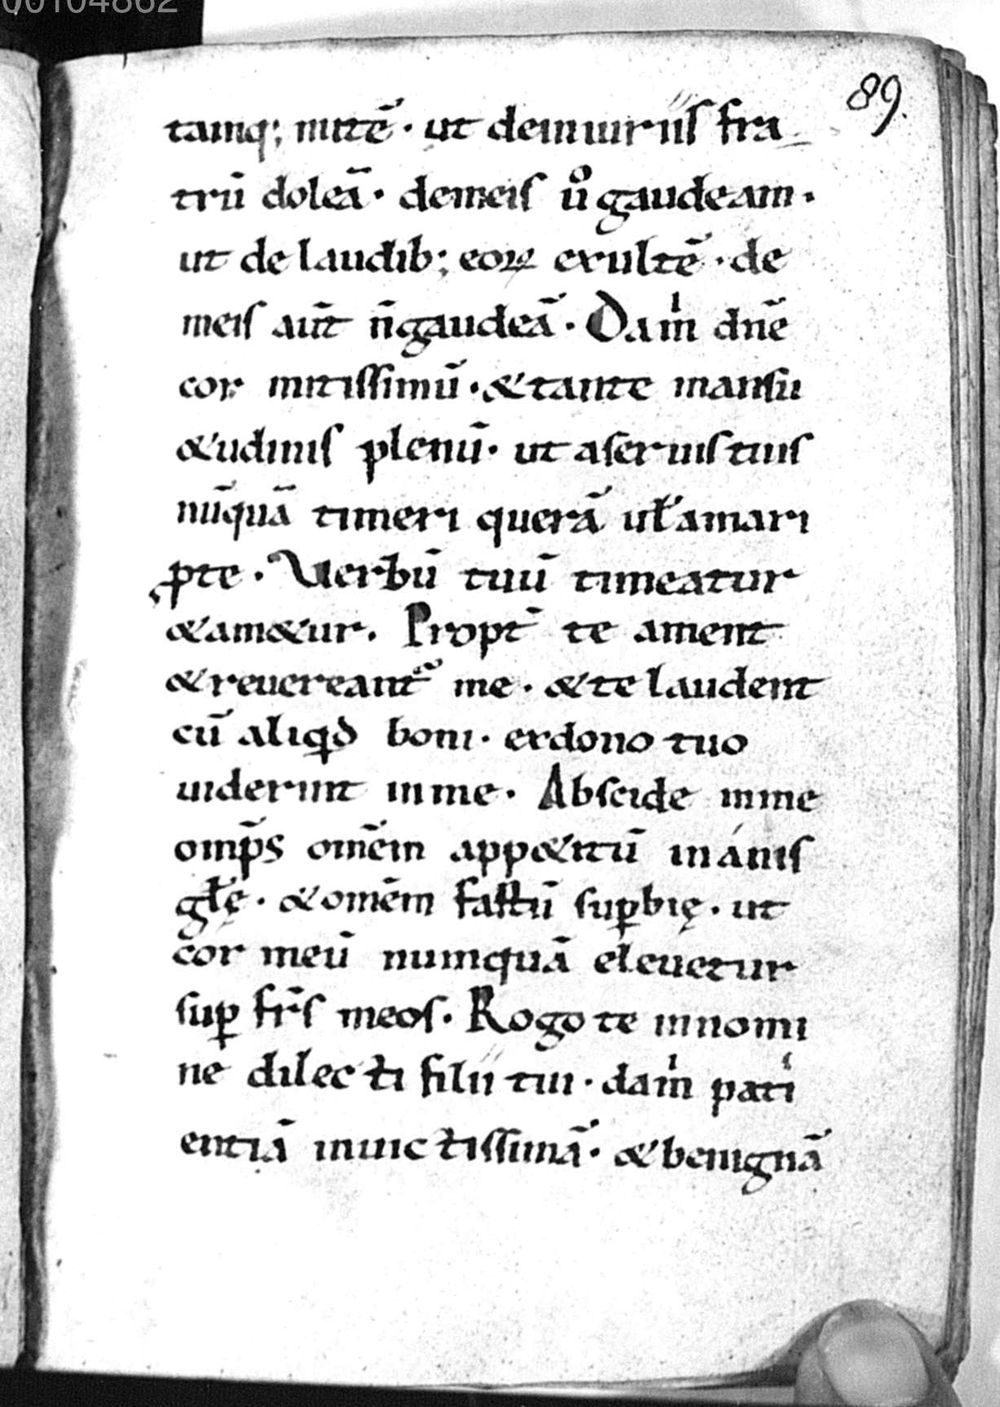 00104862
89.
tamq; mitē · ut deiniuriis fra
trū doleā · demeis ů gaudeam ·
ut de laudib; eoꝝ exultē · de
meis aūt n̄gaudeā · Dam̍ dn̄e
cor mitissimū · &tante mansu
&udinis plenū · ut aseruis tuis
nūquā timeri querā ul̄amari
ꝓte · Uerbū tuū timeatur
&am&ur. Propt̄ te ament
&reuereant᷑ me · &te laudent
cū aliqd boni · exdono tuo
uiderint inme · Abscide inme
omp̄s om̄em app&itū inanis
gl̄ę · &om̄em fastū suꝑbię · ut
cor meū numquā eleuetur
suꝑ fr̄s meos · Rogo te innomi
ne dilecti filii tui · dam̍ pati
entiā inuictissimā · &benignā